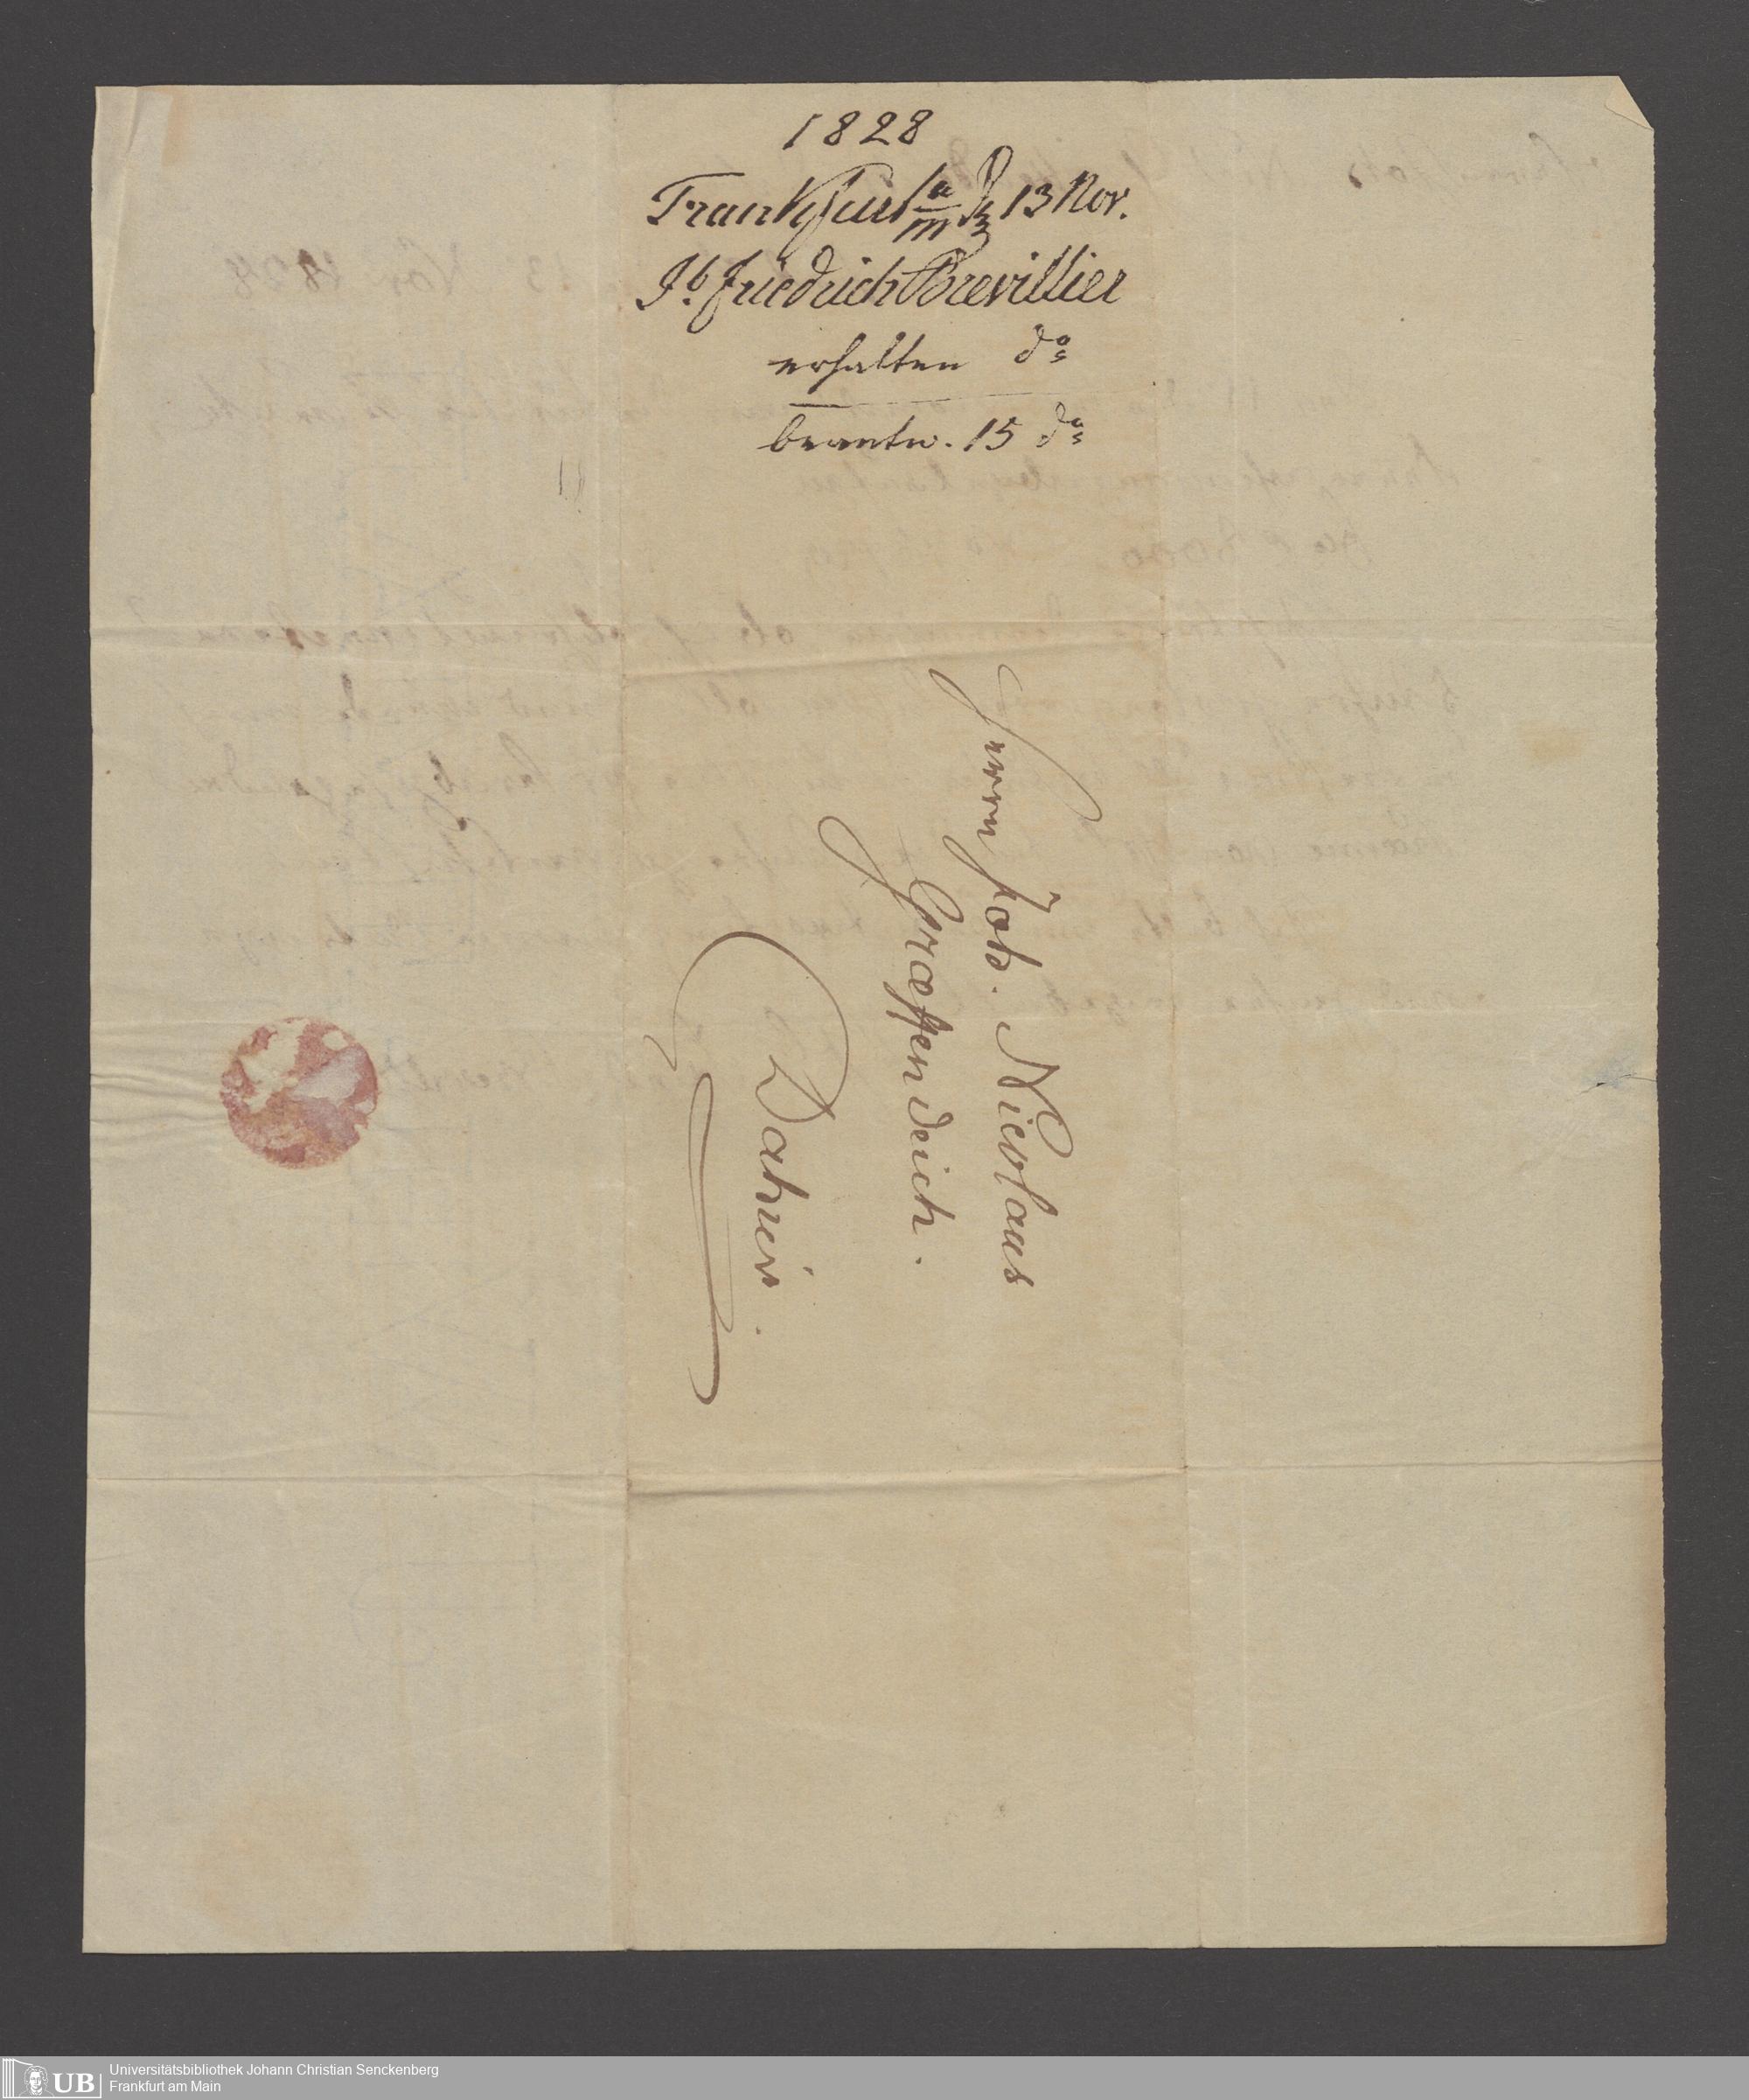 1828
Frankfurt a/m d 13 Nov.
Jb. Friedrich Brevillier
erhalten do
beantw. 15 do
Herrn Joh. Nicolaus
Græffendeich.
Dahier.
Universitätsbibliothek Johann Christian Senckenberg
Frankfurt am Main
UB